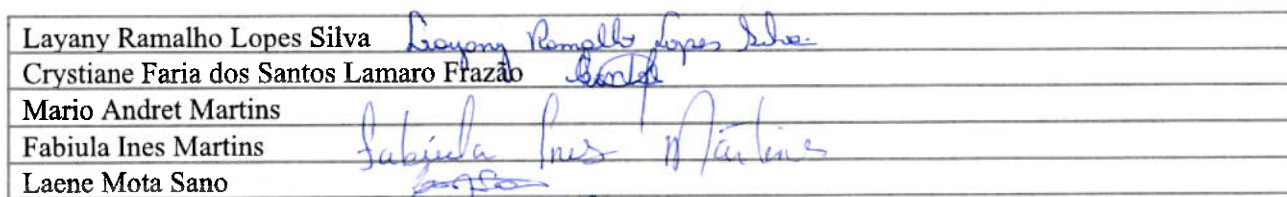 Layany Ramalho Lopes Silva Layany Ramalho Lopes Silva.
Crystiane Faria dos Santos Lamaro Frazão
Mario Andret Martins
Fabiula Ines Martins Fabiula Ines Martins
Laene Mota Sano